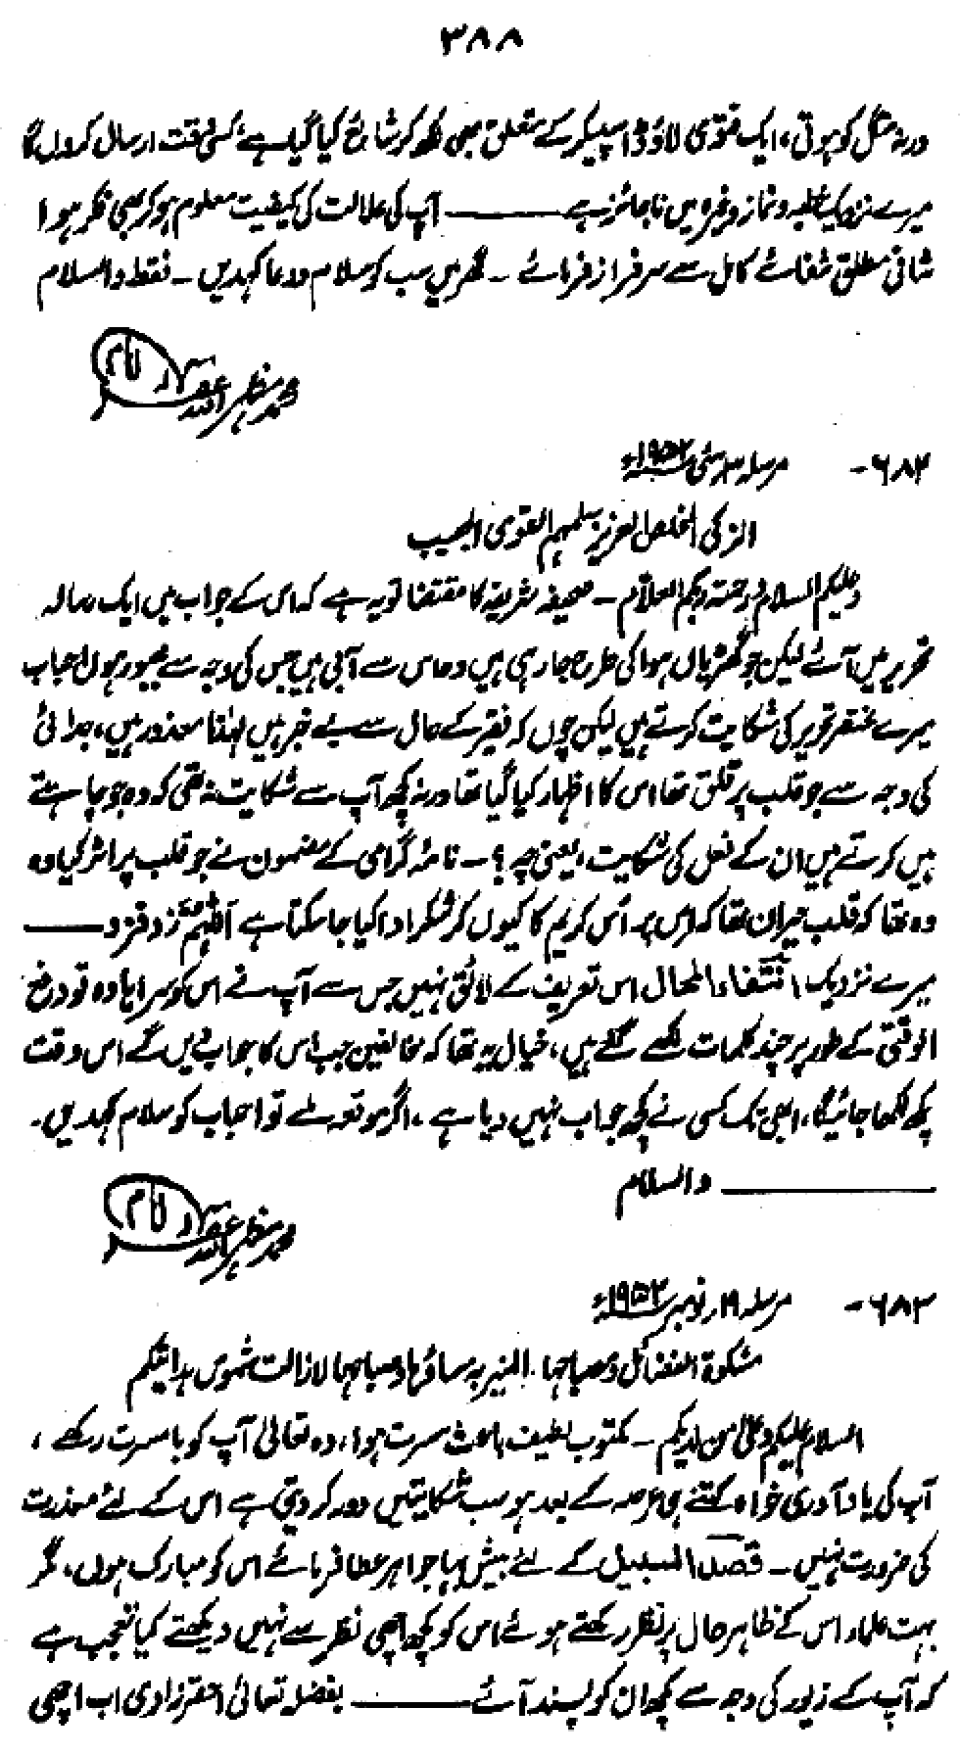 ۳۸۸
ورنہ مشکل کو ہوتی، ایک فتویٰ لاؤڈ اسپیکر کے متعلق بھی لکھ کر شائع کیا گیا ہے، کسی وقت ارسال کروں گا
میرے نزدیک خطبہ و نماز وغیرہ میں ناجائز ہے ـــــــ آپ کی علالت کی کیفیت معلوم ہو کر بھی فکر ہوا
شافی مطلق شفائے کامل سے سرفراز فرمائے ۔ گھر میں سب کو سلام و دعا کہدیں ۔ فقط والسلام
محمد مظہر اللہ غفرلہ امام
۶۸۲- مرسلہ ۳ مئی ۱۹۵۲ء
الزکی المخلص العزیز سلمہم القوی المجیب
وعلیکم السلام ورحمۃ ربکم العلام ۔ صحیفہ شریفہ کا مقتضا تو یہ ہے کہ اس کے جواب میں ایک رسالہ
تحریر میں آئے لیکن جو گھڑیاں ہوا کی طرح جا رہی ہیں وہ اس سے آبی ہیں جس کی وجہ سے مجبور ہوں احباب
میرے مختصر تحریر کی شکایت کرتے ہیں لیکن چوں کہ فقیر کے حال سے بے خبر ہیں لہٰذا معذور ہیں، جدائی
کی وجہ سے جو قلب پر قلق تھا اس کا اظہار کیا گیا تھا ورنہ کچھ آپ سے شکایت نہ تھی کہ وہ جو چاہتے
ہیں کرتے ہیں ان کے فعل کی شکایت، یعنی چہ؟ ۔ نامۂ گرامی کے مضمون نے جو قلب پر اثر کیا وہ
وہ تھا کہ قلب حیران تھا کہ اس پر اُس کریم کا کیوں کر شکر ادا کیا جا سکتا ہے اللّٰہم زد فزد ـــــــ
میرے نزدیک انتفاء المحال اس تعریف کے لائق نہیں جس سے آپ نے اس کو سراہا وہ تو دفع
الوقتی کے طور پر چند کلمات لکھے گئے ہیں، خیال یہ تھا کہ مخالفین جب اس کا جواب دیں گے اس وقت
کچھ لکھا جائیگا، ابھی تک کسی نے کچھ جواب نہیں دیا ہے ۔ اگر موقعہ ملے تو احباب کو سلام کہدیں ۔
ـــــــ والسلام
محمد مظہر اللہ غفرلہ امام
۶۸۳- مرسلہ ۱۹ نومبر ۱۹۵۲ء
مشکوۃ الفضائل ومصباحہا، المنیر بہ مساؤہا وصباحہا لازالت شموس ہدایتکم
السلام علیکم وعلیٰ من لدیکم ۔ مکتوب لطیف باعث مسرت ہوا، وہ تعالیٰ آپ کو بامسرت رکھے،
آپ کی یاد آوری خواہ کتنے ہی عرصہ کے بعد ہو سب شکایتیں دور کر دیتی ہے اس کے لئے معذرت
کی ضرورت نہیں ۔ قصد السبیل کے لئے بیش بہا جواہر عطا فرمائے اس کو مبارک ہوں، گر
بہت علماء اس کے ظاہر حال پر نظر رکھتے ہوئے اس کو کچھ اچھی نظر سے نہیں دیکھتے کیا تعجب ہے
کہ آپ کے زیور کی وجہ سے کچھ ان کو پسند آئے ـــــــ بفضلہ تعالیٰ احقر زادی اب اچھی